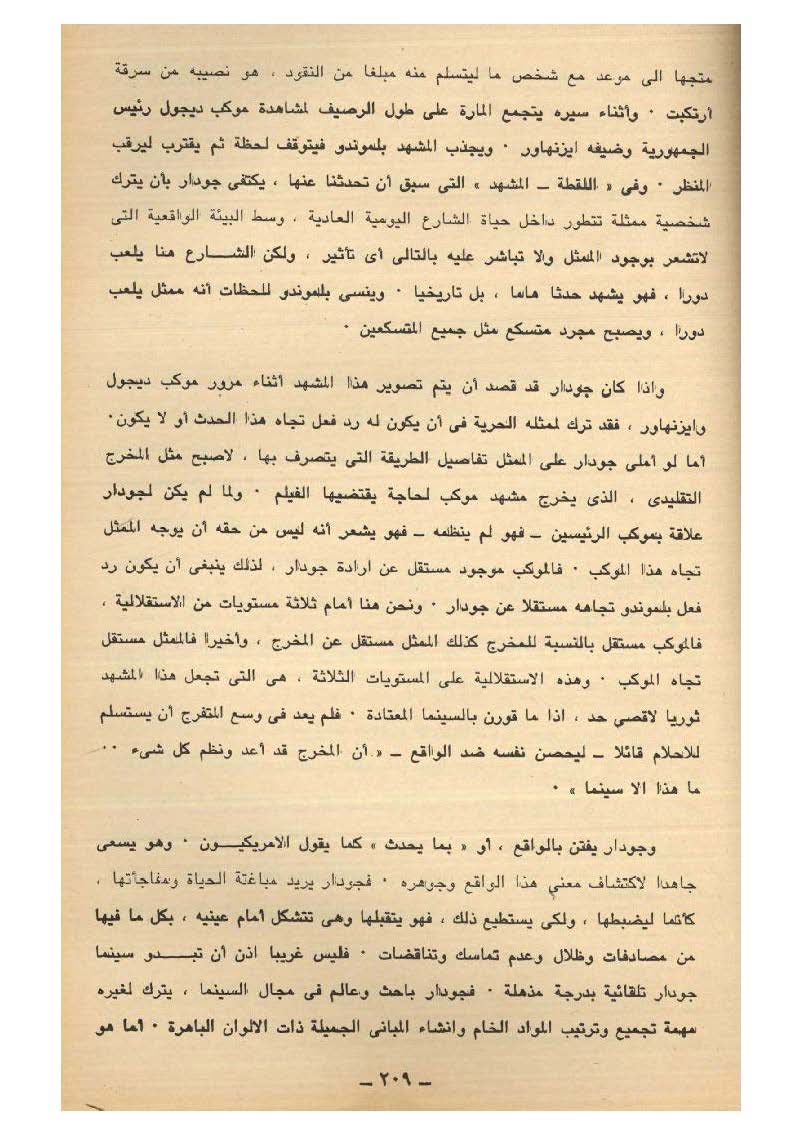 متجها الى موعد مع شخص ما ليتسلم منه مبلغا من النقود ، هو نصيبه من سرقة
ارتكبت ٠ وأثناء سيره يتجمع المارة على طول الرصيف لمشاهدة موكب ديجول رئيس
الجمهورية وضيفه ايزنهاور ٠ ويجذب المشهد بلموندو فيتوقف لحظة ثم يقترب ليرقب
المنظر ٠ وفى « اللقطة ــ المشهد » التى سبق أن تحدثنا عنها ، يكتفى جودار بأن يترك
شخصية ممثلة تتطور داخل حياة الشارع اليومية العادية ، وسط البيئة الواقعية التى
لاتشعر بوجود الممثل ولا تباشر عليه بالتالى أى تأثير ، ولكن الشـــارع هنا يلعب
دورا ، فهو يشهد حدثا هاما ، بل تاريخيا ٠ وينسى بلموندو للحظات أنه ممثل يلعب
دورا ، ويصبح مجرد متسكع مثل جميع المتسكعين ٠
واذا كان جودار قد قصد أن يتم تصوير هذا المشهد أثناء مرور موكب ديجول
وايزنهاور ، فقد ترك لممثله الحرية فى أن يكون له رد فعل تجاه هذا الحدث أو لا يكون٠
أما لو أملى جودار على الممثل تفاصيل الطريقة التى يتصرف بها ، لاصبح مثل المخرج
التقليدى ، الذى يخرج مشهد موكب لحاجة يقتضيها الفيلم ٠ ولما لم يكن لجودار
علاقة بموكب الرئيسين ــ فهو لم ينظمه ــ فهو يشعر أنه ليس من حقه أن يوجه الممثل
تجاه هذا الموكب ٠ فالموكب موجود مستقل عن ارادة جودار ، لذلك ينبغى أن يكون رد
فعل بلموندو تجاهه مستقلا عن جودار ٠ ونحن هنا أمام ثلاثة مستويات من الاستقلالية ،
فالموكب مستقل بالنسبة للمخرج كذلك الممثل مستقل عن المخرج ، وأخيرا فالممثل مستقل
تجاه الموكب ٠ وهذه الاستقلالية على المستويات الثلاثة ، هى التى تجعل هذا المشهد
ثوريا لاقصي حد ، اذا ما قورن بالسينما المعتادة ٠ فلم يعد فى وسع المتفرج أن يستسلم
للاحلام قائلا ــ ليحصن نفسه ضد الواقع ــ « أن المخرج قد أعد ونظم كل شىء ٠٠
ما هذا الا سينما » ٠
وجودار يفتن بالواقع ، أو « بما يحدث » كما يقول الامريكيــون ٠ وهو يسعى
جاهدا لاكتشاف معني هذا الواقع وجوهره ٠ فجودار يريد مباغتة الحياة ومفاجأتها ،
كأنما ليضبطها ، ولكى يستطيع ذلك ، فهو يتقبلها وهى تتشكل أمام عينيه ، بكل ما فيها
من مصادفات وظلال وعدم تماسك وتناقضات ٠ فليس غريبا اذن أن تبـــدو سينما
جودار تلقائية بدرجة مذهلة ٠ فجودار باحث وعالم فى مجال السينما ، يترك لغيره
مهمة تجميع وترتيب المواد الخام وانشاء المبانى الجميلة ذات الالوان الباهرة ٠ أما هو
ــ ٢٠٩ ــ